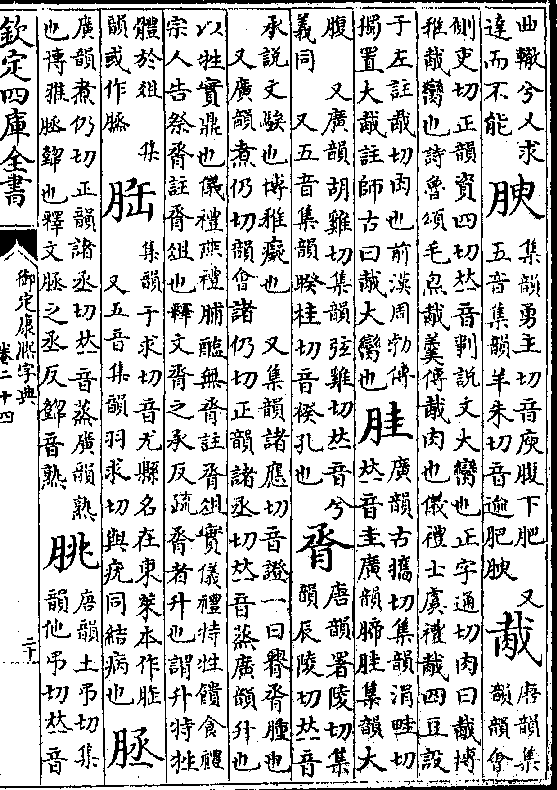 曲轍兮又求
達而不能
腴
集韻勇主切音庾腹下肥 又
五音集韻羊朱切音逾肥腴
胾
唐韻集
韻韻會
側吏切正韻資四切𠀤音剚說文大臠也正字通切肉曰胾博
雅胾臠也詩魯頌毛炰胾羹傳胾肉也儀禮士虞禮胾四豆設
于左註胾切肉也前漢周勃傳
獨置大胾註師古曰胾大臠也
胿
廣韻古攜切集韻涓畦切
𠀤音圭廣韻胿集韻大
腹 又廣韻胡雞切集韻弦雞切𠀤音兮
義同 又五音集韻睽桂切音揆孔也
脀
唐韻署陵切集
韻辰陵切𠀤音
承說文騃也博雅癡也 又集韻諸應切音證一曰臖脀腫也
又廣韻煮仍切韻會諸仍切正韻諸丞切𠀤音蒸廣韻升也
以牲實鼎也儀禮燕禮脯醢無脀註脀俎實儀禮特牲饋食禮
宗人告祭脀註脀俎也釋文脀之承反疏脀者升也謂升特牲
體於俎 集
韻或作
集韻于求切音尤縣名在東萊本作
又五音集韻羽求切與疣同結病也
廣韻煮仍切正韻諸丞切𠀤音蒸廣韻熟
也博雅也釋文之丞反音熟
朓
唐韻土弔切集
韻他弔切𠀤音
欽定四庫全書
御定康熙字典
卷二十四
二十